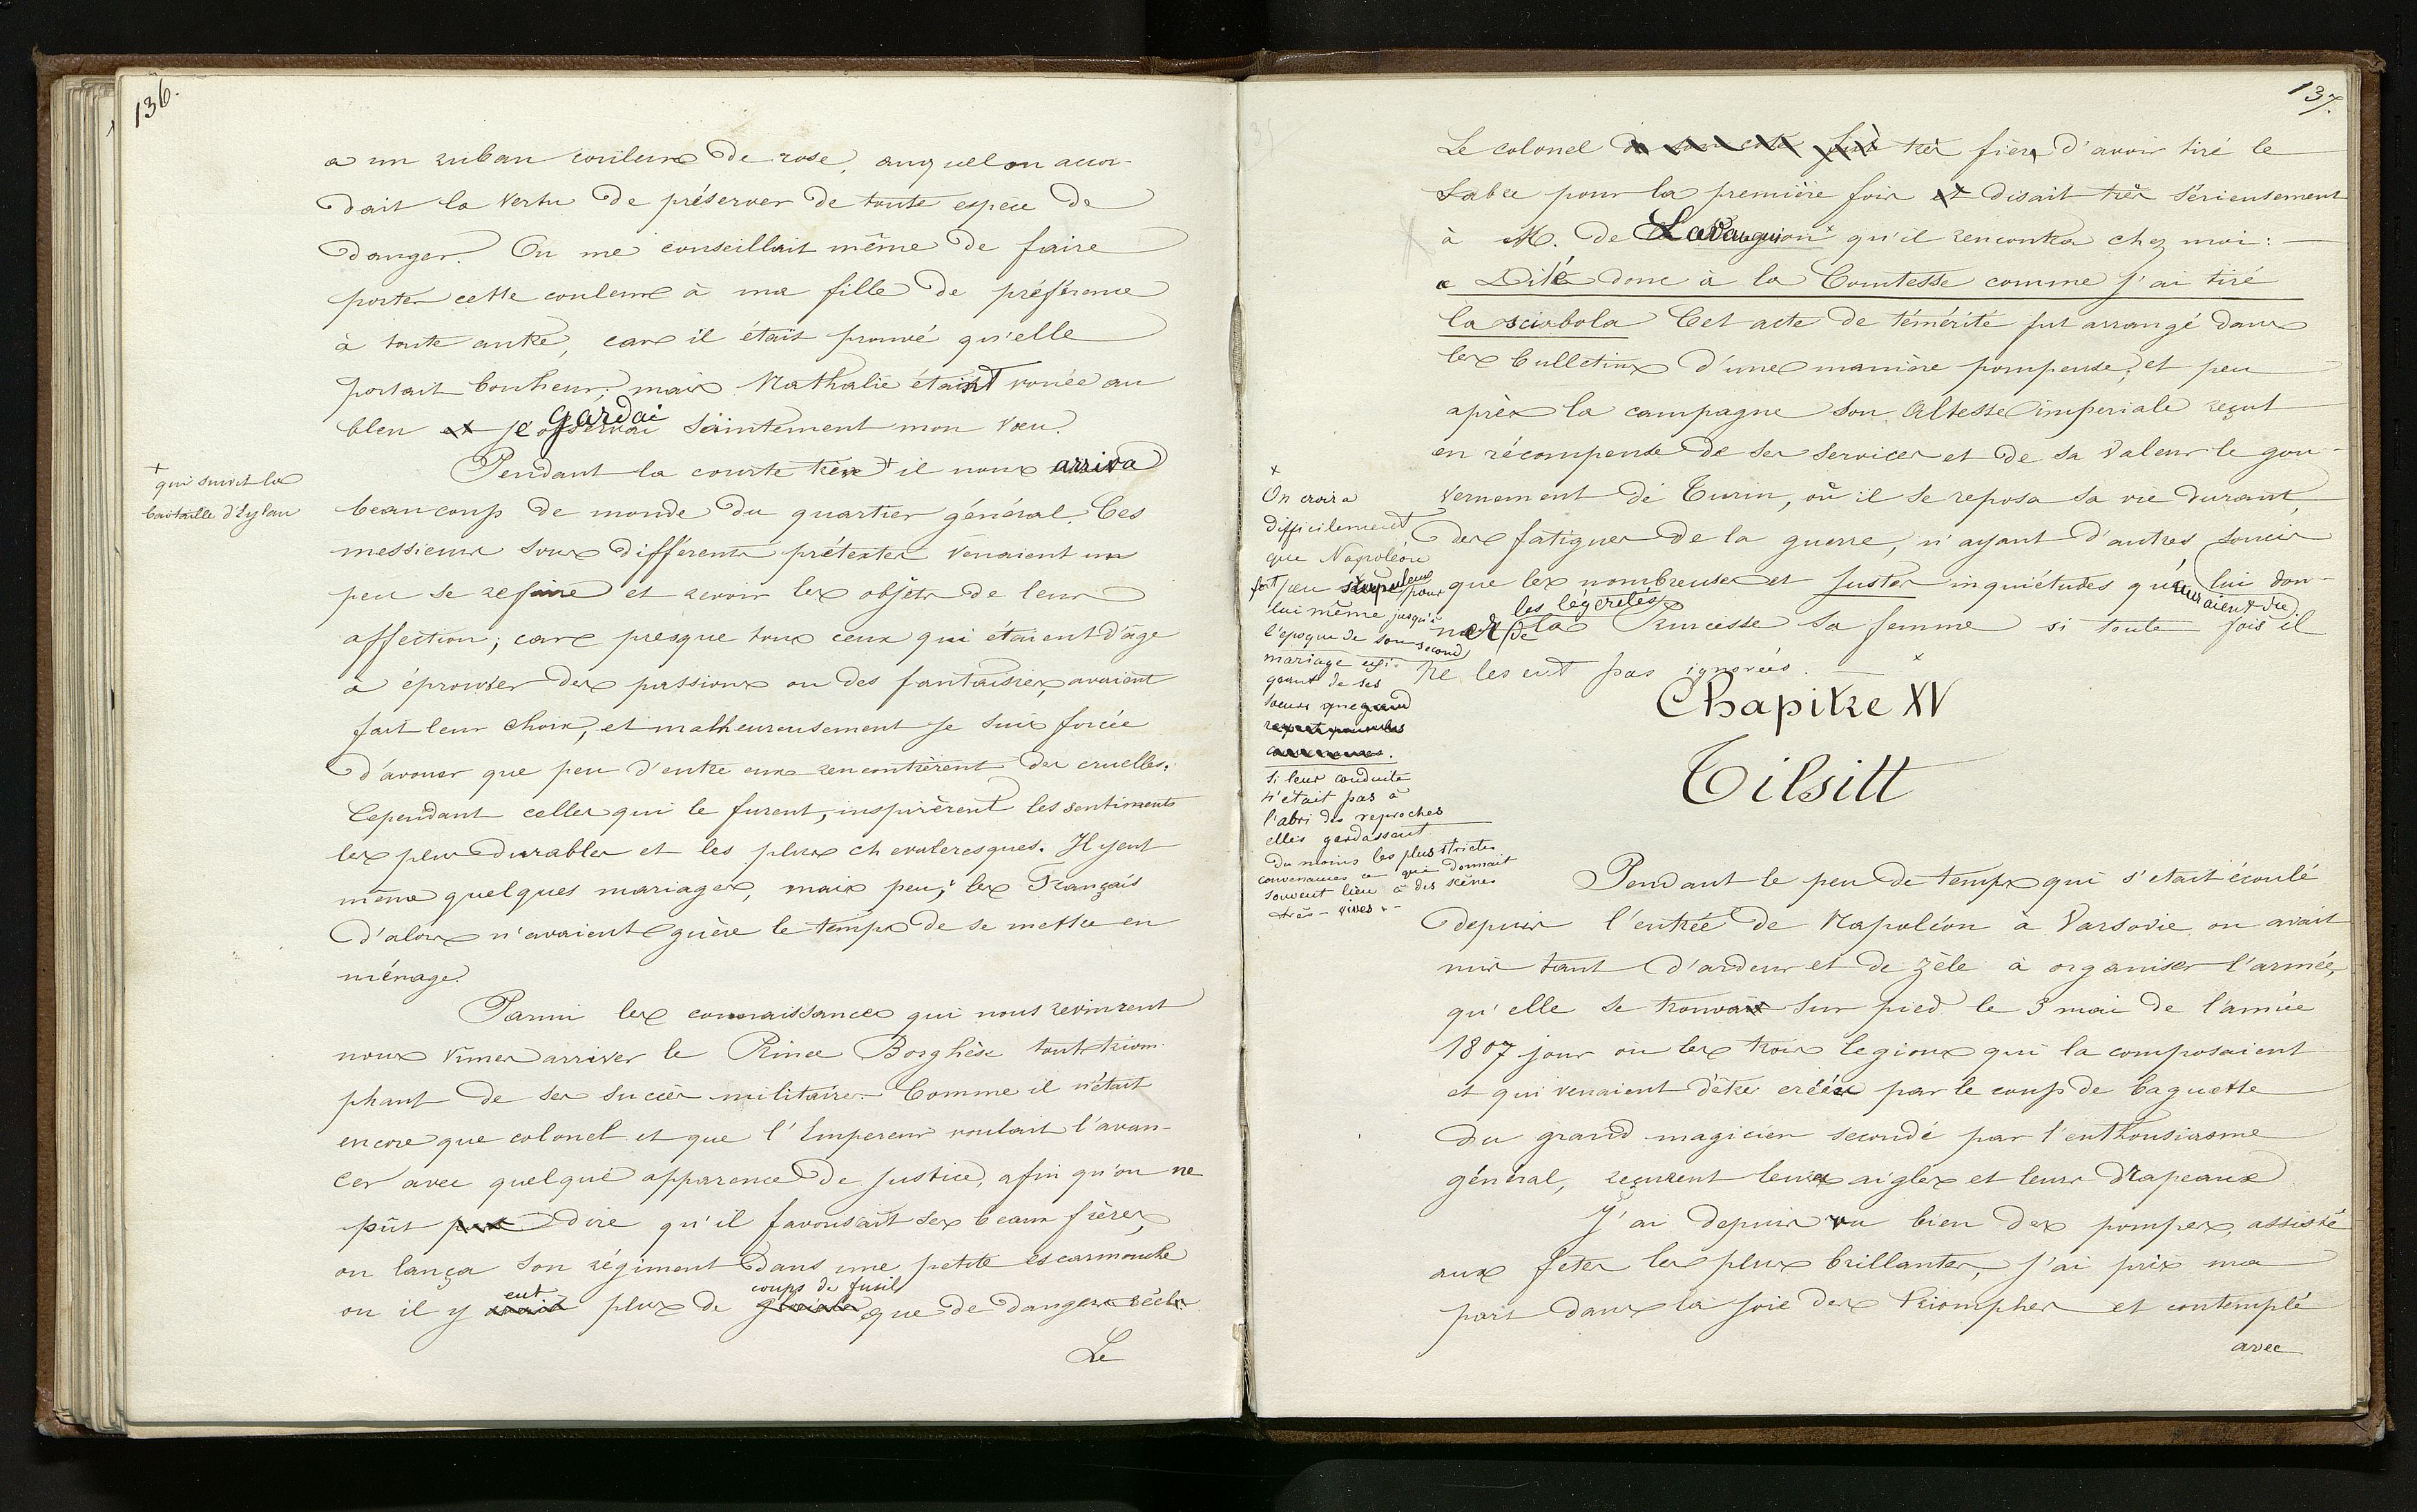 136.
a un ruban couleur de rose, auquel on accor-
dait la vertu de préserver de toute espèce de
danger. On me conseillait même de faire
porter cette couleur à ma fille de préférence
à toute autre, car il était prouvé qu'elle
portait bonheur; mais Nathalie étant vouée au
bleu et je observai gardai saintement mon vœu.
Pendant la courte trève + il nous arriva
+ qui suivit la
bataille d'Eylau
beaucoup de monde du quartier général. Ces
messieurs sous différents prétextes venaient un
peu se refaire et revoir les objets de leur
affection; car presque tous ceux qui étaient d'âge
à éprouver des passions ou des fantaisies, avaient
fait leur choix, et malheureusement je suis forcée
d'avouer que peu d'entre eux rencontrèrent des cruelles.
Cependant celles qui le furent, inspirèrent les sentiments
les plus durables et les plus chevaleresques. Il y eut
même quelques mariages, mais peu; les Français
d'alors n'avaient guère le temps de se mettre en
ménage.
Parmi les connaissances qui nous revinrent
nous vîmes arriver le Prince Borghèse tout triom-
phant de ses succès militaires. Comme il n'était
encore que colonel et que l'Empereur voulait l'avan-
cer avec quelque apparence de justice, afin qu'on ne
pût pas dire qu'il favorisait ses beaux frères,
on lança son régiment dans une petite escarmouche
ou il y avait eut plus de coups de fusil que de dangers réels.
Le
137.
Le colonel de son côté très fier d'avoir tiré le
sabre pour la première fois et disait très sérieusement
à M. de Lavauguion x qu'il rencontra chez moi: —
« Dité donc à la Comtesse comme j'ai tiré
la sciabola Cet acte de témérité fut arrangé dans
les bulletins d'une manière pompeuse, et peu
après la campagne son Altesse impériale reçut
en récompense de ses services et de sa valeur le gou-
vernement de Turin, où il se reposa sa vie durant,
des fatigues de la guerre, n'ayant d'autres soucis
que les nombreuses et justes inquiétudes qu'auraient du lui don-
ner les légèretés de la Princesse sa femme si toute fois il
ne les eut pas ignorées. — x
x
On croira
difficilement
que Napoléon
fort peu scrupuleux pour
lui même jusqu'à
l'époque de son second
mariage exi-
geant de ses
soeurs que quand
si leur conduite
n'était pas à
l'abri des reproches
elles gardassent
du moins les plus strictes
convenances ce qui donnait
souvent lieu à des scènes
très-vives. -
Chapitre XV
Tilsitt
Pendant le peu de temps qui s'etait écoulé
depuis l'entrée de Napoléon à Varsovie on avait
mis tant d'ardeur et de zèle à organiser l'armée,
qu'elle se trouva sur pied le 3 mai de l'année
1807 jour où les trois legions qui la composaient
et qui venaient d'être créées par le coup de baguette
du grand magicien secondé par l'enthousiasme
général, reçurent leurs aigles et leurs drapeaux
J'ai depuis vu bien des pompes, assisté
aux fêtes les plus brillantes, j'ai pris ma
part dans la joie des triomphes et contemplé
avec